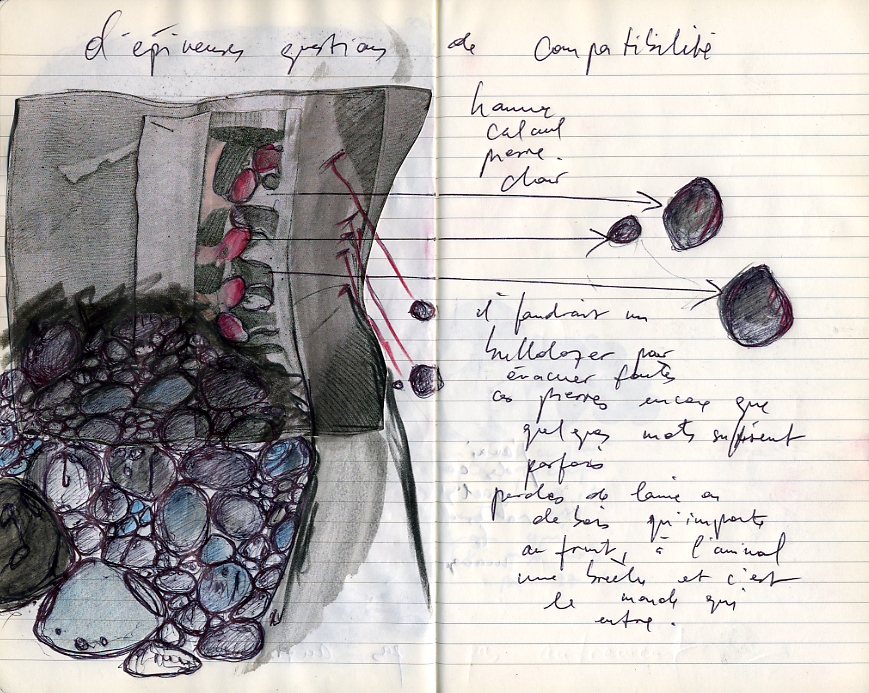 d'épineuses questions de compatibilité
calcul
pierre.
chair
il faudrait un
bulldozer pour
évacuer toutes
ces pierres encore que
quelques mots suffisent
parfois
paroles de laine ou
de bois qu'importe
au fruit, à l'animal
une brèche et c'est
le monde qui
entre.